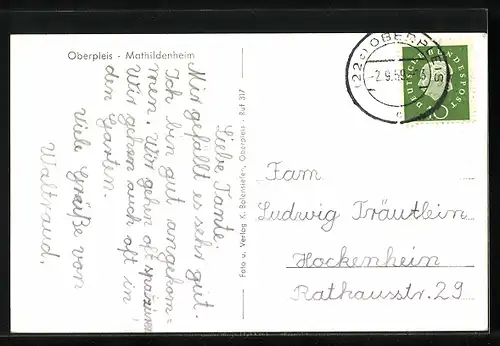 Oberpleis - Mathildenheim
Liebe Tante!
Mir gefällt es sehr gut.
Ich bin gut angekom-
men. Wir gehen oft spazieren
Wir gehen auch oft in
den Garten.
Viele Grüße von
Waltraud.
Foto u. Verlag K. Bolenstiefen, Oberpleis - Ruf 317
(22c) OBERPLEIS
-2.9.59
DEUTSCHE BUNDESPOST
10
Fam.
Ludwig Träutlein
Hockenheim
Rathausstr. 29